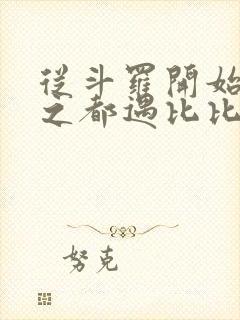 從斗羅開始
之都遇比比
努克